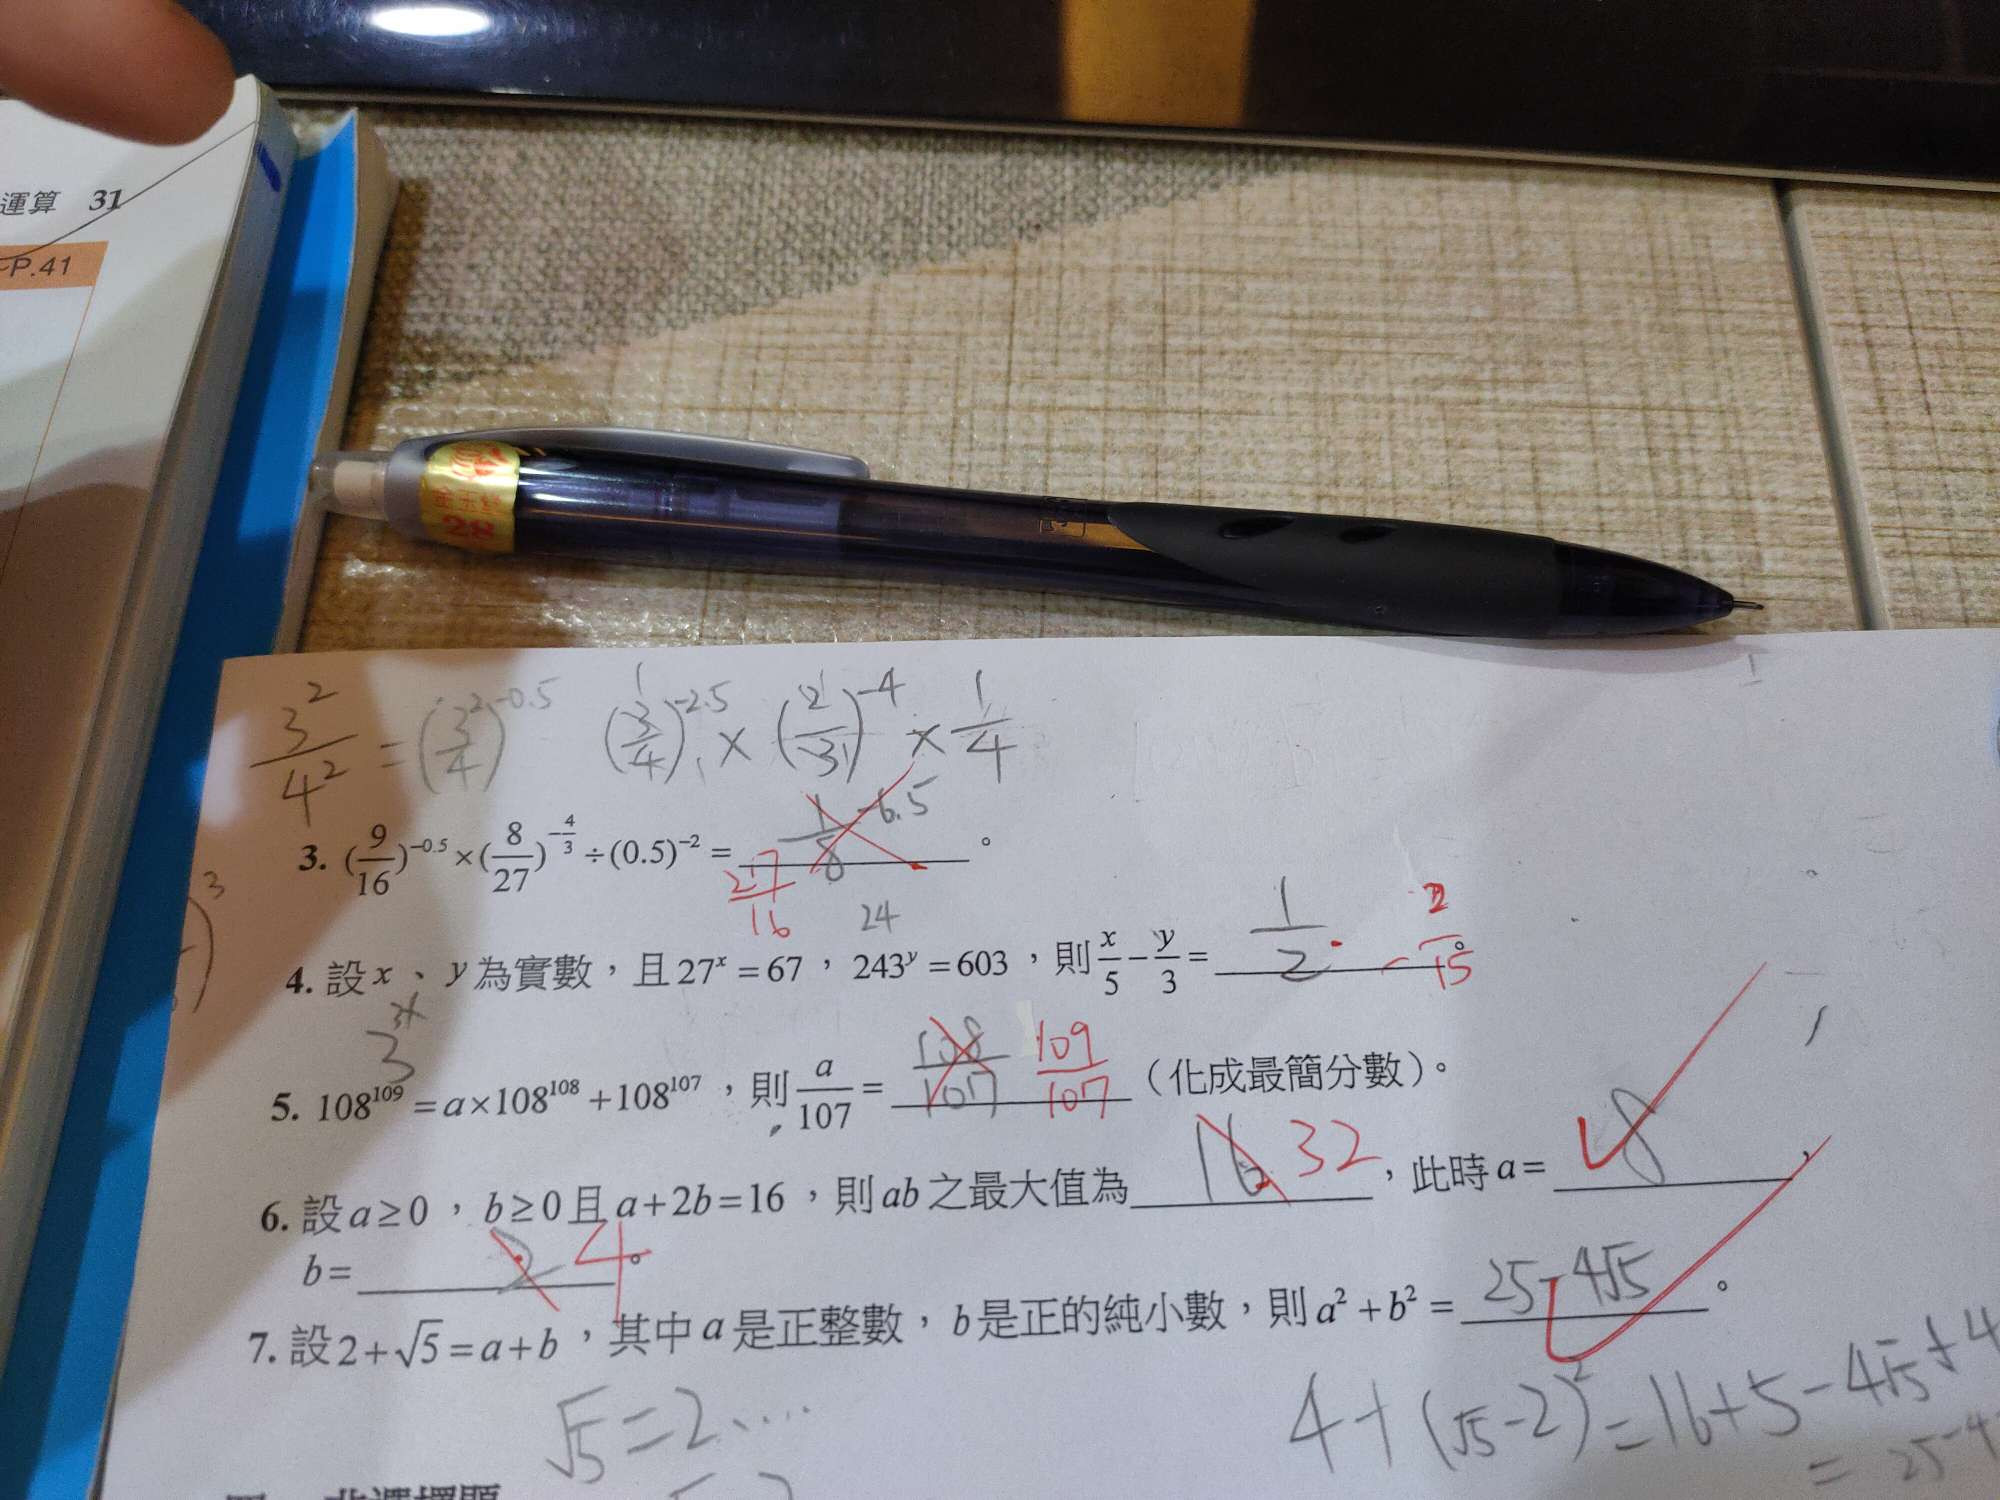 運算 31
P.41
28
3² / 4² = (3/4)²⁻⁰·⁵ (3/4)⁻²·⁵ × (2/3)⁻⁴ × 1/4
3. (9/16)⁻⁰·⁵ × (8/27)^(-4/3) ÷ (0.5)⁻² = 1/8 -6.5 。
27/16
24
3
4. 設 x、y 為實數，且 27ˣ = 67，243ʸ = 603，則 x/5 − y/3 = 1/2 −2/15 。
3³ˣ
5. 108¹⁰⁹ = a×108¹⁰⁸ + 108¹⁰⁷，則 a/107 = 108/107 109/107 （化成最簡分數）。
6. 設 a ≥ 0，b ≥ 0 且 a + 2b = 16，則 ab 之最大值為 16 32，此時 a = 8，
b = 2 4。
7. 設 2 + √5 = a + b，其中 a 是正整數，b 是正的純小數，則 a² + b² = 25-4√5。
√5 = 2.....
4+(√5-2)² = 16+5-4√5+4
= 25-4